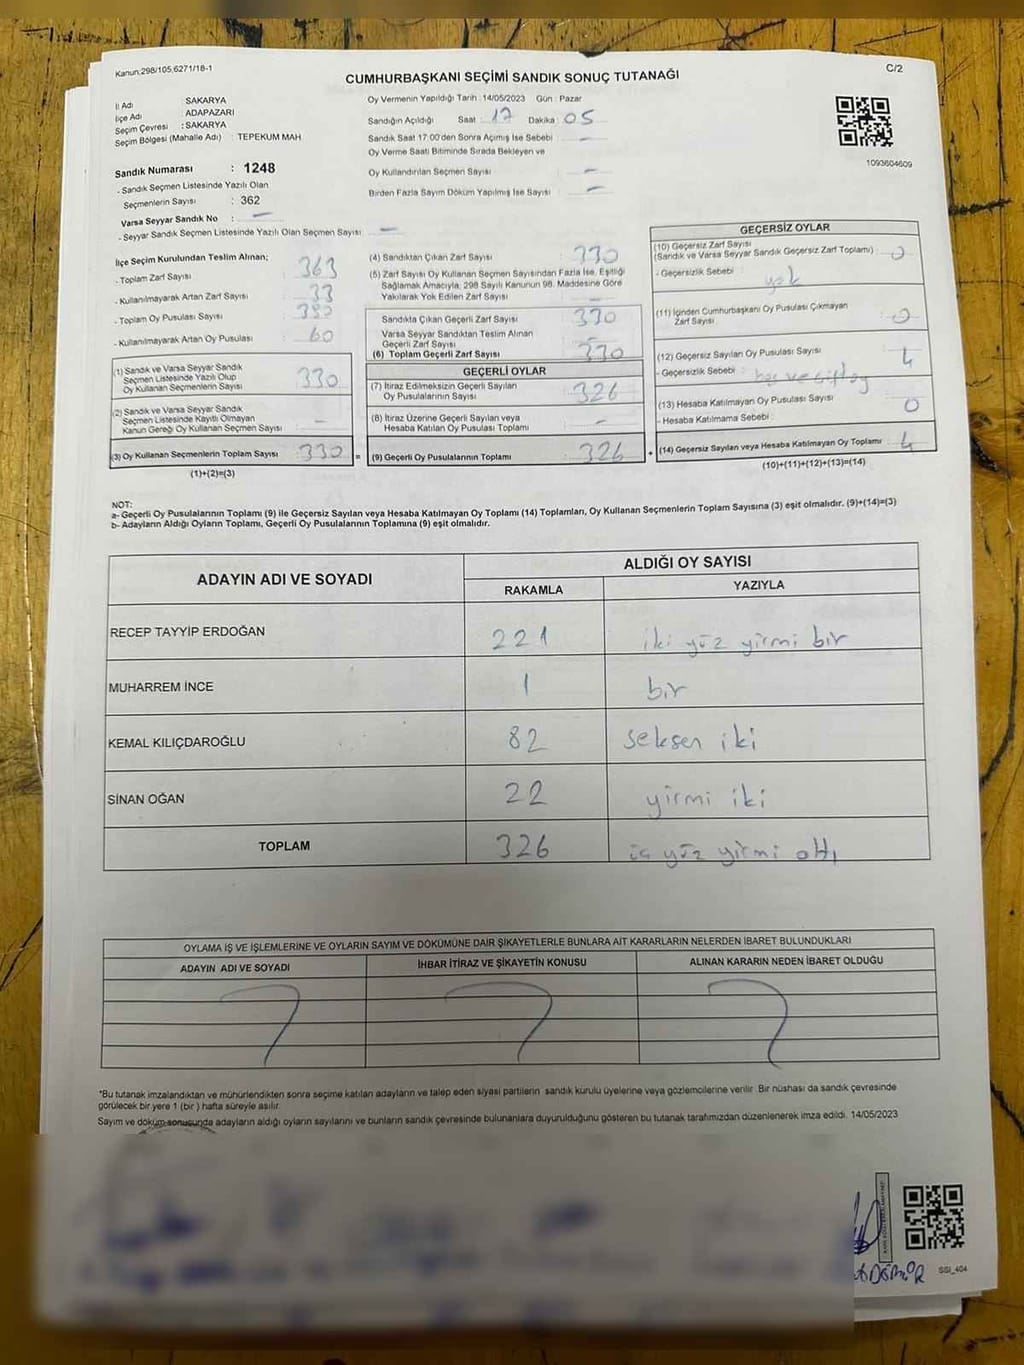 Kanun:298/105,6271/18-1
CUMHURBAŞKANI SEÇİMİ SANDIK SONUÇ TUTANAĞI
C/2
İl Adı SAKARYA
İlçe Adı ADAPAZARI
Seçim Çevresi : SAKARYA
Seçim Bölgesi (Mahalle Adı) : TEPEKUM MAH
Oy Vermenin Yapıldığı Tarih : 14/05/2023 Gün : Pazar
Sandığın Açıldığı Saat : 17 Dakika : 05
Sandık Saat 17:00'den Sonra Açımış İse Sebebi : —
Oy Verme Saati Bitiminde Sırada Bekleyen ve
Oy Kullandırılan Seçmen Sayısı : —
Birden Fazla Sayım Döküm Yapılmış İse Sayısı : —
1093604609
Sandık Numarası : 1248
- Sandık Seçmen Listesinde Yazılı Olan
Seçmenlerin Sayısı : 362
Varsa Seyyar Sandık No : —
- Seyyar Sandık Seçmen Listesinde Yazılı Olan Seçmen Sayısı : —
İlçe Seçim Kurulundan Teslim Alınan;
- Toplam Zarf Sayısı : 363
- Kullanılmayarak Artan Zarf Sayısı : 33
- Toplam Oy Pusulası Sayısı :
- Kullanılmayarak Artan Oy Pusulası : 60
(1) Sandık ve Varsa Seyyar Sandık
Seçmen Listesinde Yazılı Olup
Oy Kullanan Seçmenlerin Sayısı : 330
(2) Sandık ve Varsa Seyyar Sandık
Seçmen Listesinde Kayıtlı Olmayan
Kanun Gereği Oy Kullanan Seçmen Sayısı : —
(3) Oy Kullanan Seçmenlerin Toplam Sayısı : 330 =
(1)+(2)=(3)
(4) Sandıktan Çıkan Zarf Sayısı : 330
(5) Zarf Sayısı Oy Kullanan Seçmen Sayısından Fazla İse, Eşitliği
Sağlamak Amacıyla, 298 Sayılı Kanunun 98. Maddesine Göre
Yakılarak Yok Edilen Zarf Sayısı : —
Sandıkta Çıkan Geçerli Zarf Sayısı : 330
Varsa Seyyar Sandıktan Teslim Alınan
Geçerli Zarf Sayısı : —
(6) Toplam Geçerli Zarf Sayısı : 330
GEÇERLİ OYLAR
(7) İtiraz Edilmeksizin Geçerli Sayılan
Oy Pusulalarının Sayısı : 326
(8) İtiraz Üzerine Geçerli Sayılan veya
Hesaba Katılan Oy Pusulası Toplamı : —
(9) Geçerli Oy Pusulalarının Toplamı : 326 +
GEÇERSİZ OYLAR
(10) Geçersiz Zarf Sayısı
(Sandık ve Varsa Seyyar Sandık Geçersiz Zarf Toplamı) : 0
- Geçersizlik Sebebi : yok
(11) İçinden Cumhurbaşkanı Oy Pusulası Çıkmayan
Zarf Sayısı : 0
(12) Geçersiz Sayılan Oy Pusulası Sayısı : 4
- Geçersizlik Sebebi : boş ve çift oy
(13) Hesaba Katılmayan Oy Pusulası Sayısı : 0
- Hesaba Katılmama Sebebi :
(14) Geçersiz Sayılan veya Hesaba Katılmayan Oy Toplamı : 4
(10)+(11)+(12)+(13)=(14)
NOT:
a- Geçerli Oy Pusulalarının Toplamı (9) ile Geçersiz Sayılan veya Hesaba Katılmayan Oy Toplamı (14) Toplamları, Oy Kullanan Seçmenlerin Toplam Sayısına (3) eşit olmalıdır. (9)+(14)=(3)
b- Adayların Aldığı Oyların Toplamı, Geçerli Oy Pusulalarının Toplamına (9) eşit olmalıdır.
ADAYIN ADI VE SOYADI
ALDIĞI OY SAYISI
RAKAMLA YAZIYLA
RECEP TAYYİP ERDOĞAN 221 iki yüz yirmi bir
MUHARREM İNCE 1 bir
KEMAL KILIÇDAROĞLU 82 seksen iki
SİNAN OĞAN 22 yirmi iki
TOPLAM 326 üç yüz yirmi altı
OYLAMA İŞ VE İŞLEMLERİNE VE OYLARIN SAYIM VE DÖKÜMÜNE DAİR ŞİKAYETLERLE BUNLARA AİT KARARLARIN NELERDEN İBARET BULUNDUKLARI
ADAYIN ADI VE SOYADI İHBAR İTİRAZ VE ŞİKAYETİN KONUSU ALINAN KARARIN NEDEN İBARET OLDUĞU
*Bu tutanak imzalandıktan ve mühürlendikten sonra seçime katılan adayların ve talep eden siyasi partilerin sandık kurulu üyelerine veya gözlemcilerine verilir. Bir nüshası da sandık çevresinde
görülecek bir yere 1 (bir) hafta süreyle asılır.
Sayım ve döküm sonucunda adayların aldığı oyların sayılarını ve bunların sandık çevresinde bulunanlara duyurulduğunu gösteren bu tutanak tarafımızdan düzenlenerek imza edildi. 14/05/2023
SSİ_404